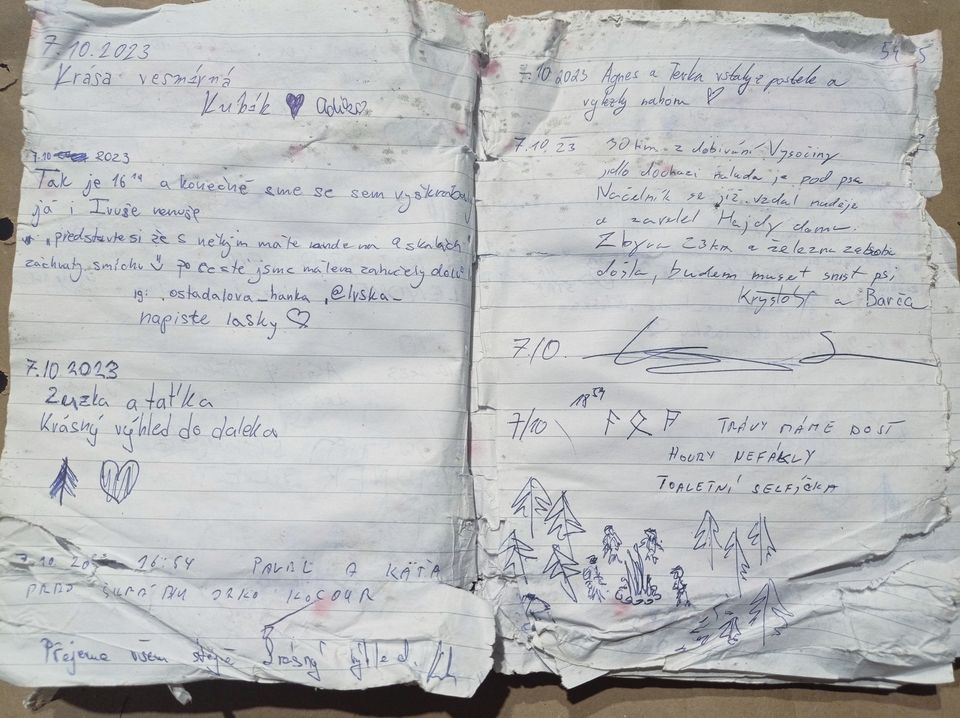 7.10.2023
Krása vesmírná
Kubák ♥
7.10 2023
Tak je 16¹⁹ a konečně sme se sem vyškrábaly
já i Ivuše nenuše
„představte si že s někým máte rande na 9 skalách"
záchvaty smíchu po cestě jsme málem zahučely dolů
ig: ostadalova_hanka, @lyska_
napište lásky ♡
7.10 2023
Zuzka a taťka
Krásný výhled do daleka
7.10 16:54 PAVEL A KÁŤA
JAKO KOCOUR
Přejeme všem stejně krásný výhled.
54 5
10 2023 Agnes a Terka vstaly z postele a
vylezly nahoru ♡
7.10 23 30km z dobívání Vysočiny
jídlo dochází nálada je pod psa
Náčelník se již vzdal naděje
a zavelel Hajdy domu.
Zbývá 23km a železná zásoba
došla, budem muset sníst psi,
Kryštof a Barča
7/10.
7/10 18⁵⁹ TRÁVY MÁME DOST
HOUBY NEFÁKLY
TOALETNÍ SELFÍČKA